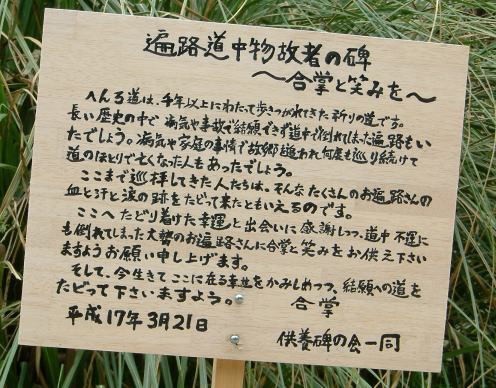 遍路道中物故者の碑
〜合掌と笑みを〜
へんろ道は、千年以上にわたって歩きつがれてきた祈りの道です。
長い歴史の中で病気や事故で結願できず道中で倒れてしまった遍路もい
たでしょう。病気や家庭の事情で故郷を追われ何度も巡り続けて
道のほとりで亡くなった人もあったでしょう。
ここまで巡拝してきた人たちは、そんなたくさんのお遍路さんの
血と汗と涙の跡をたどって来たともいえるのです。
ここへたどり着けた幸運と出会いに感謝しつつ、道中不運に
も倒れてしまった大勢のお遍路さんに合掌と笑みをお供え下さい
ますようお願い申し上げます。
そして、今生きてここに在る幸せをかみしめつつ、結願への道を
たどって下さいますよう。 合掌
平成17年3月21日
供養碑の会一同